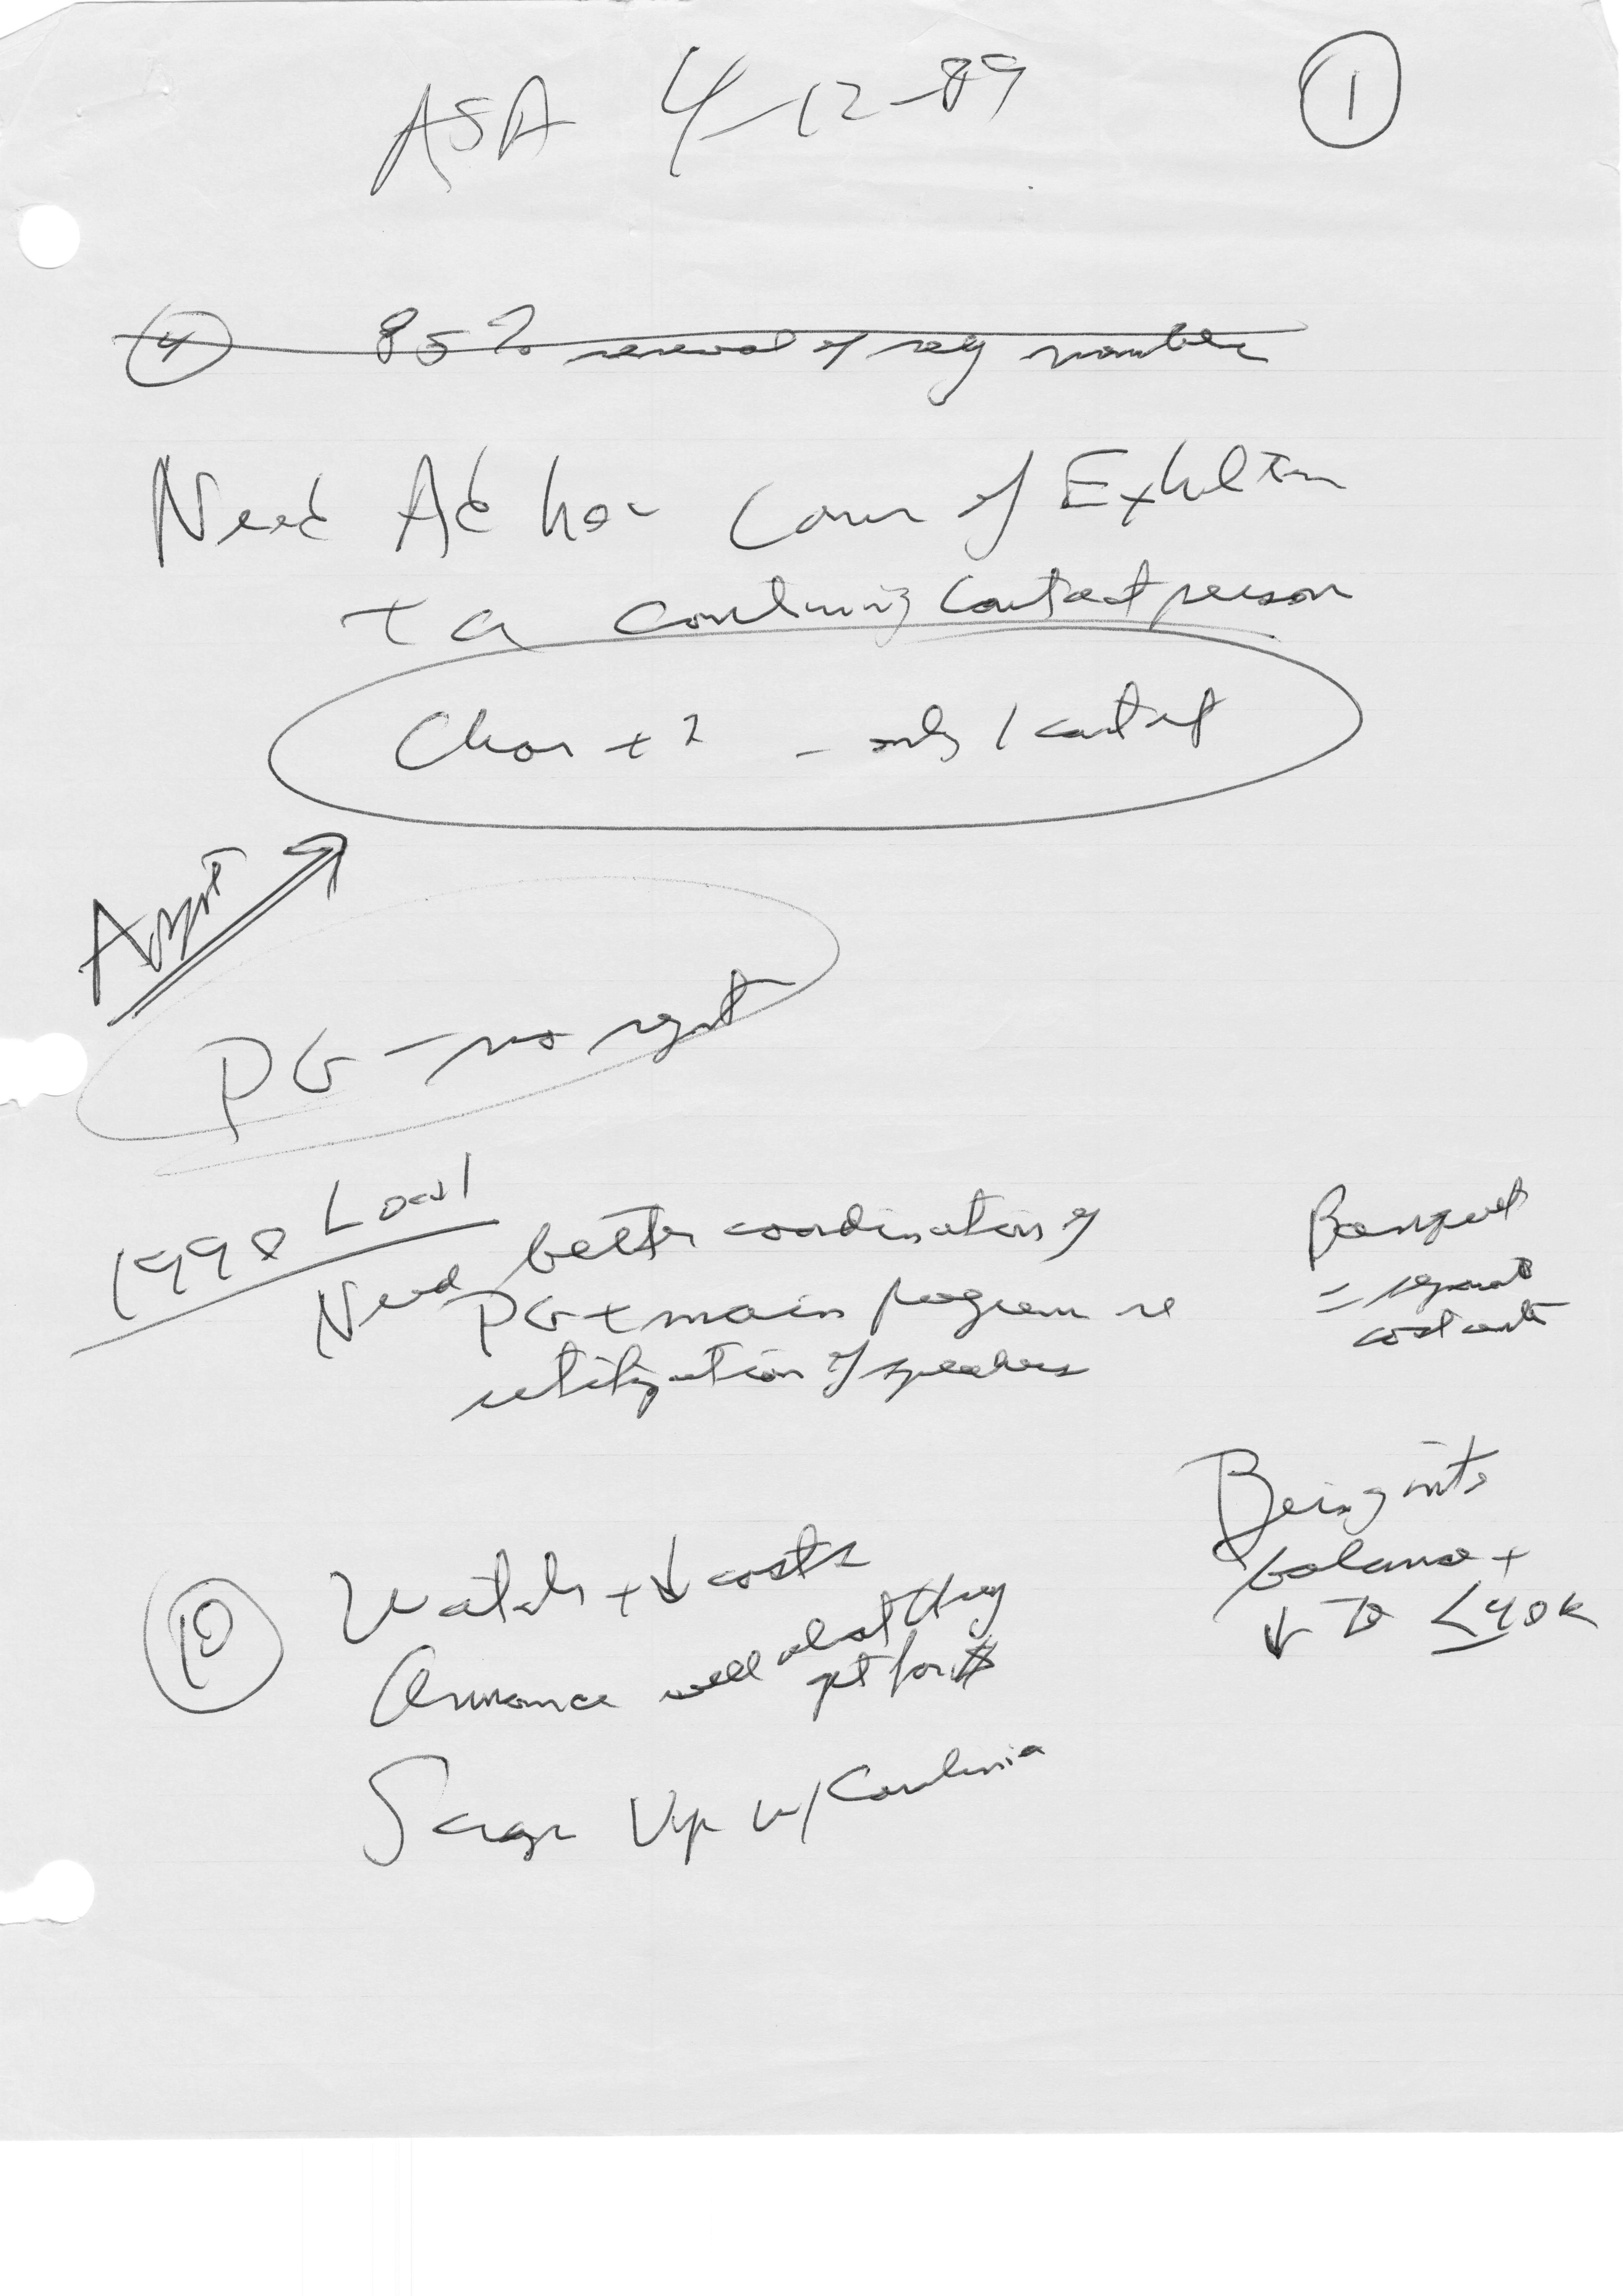 ASA 4-12-89
1
4 85% renewal of reg number
Need Ad hoc Comm of Exhibitors
+ a continuing contact person
Chair + 2 - only 1 contact
PG - no
1990 Local
Need better coordination of
PG + main program re
utilization of speakers
Banquet
= separate
cost center
Bring into
balance +
↓ to ≤ 40K
10 Watch + ↓ costs
Announce well what they
get for $
w/